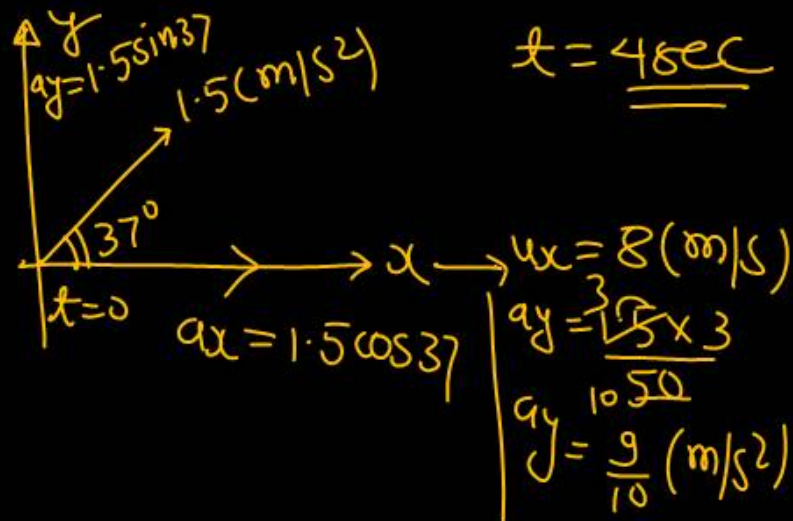 y
ay=1.5sin37
1.5(m/s²)
t = 4sec
37°
x → ux = 8(m/s)
t=0
ax = 1.5cos37
ay = 3 15 × 3
10 50
ay = 9/10 (m/s²)